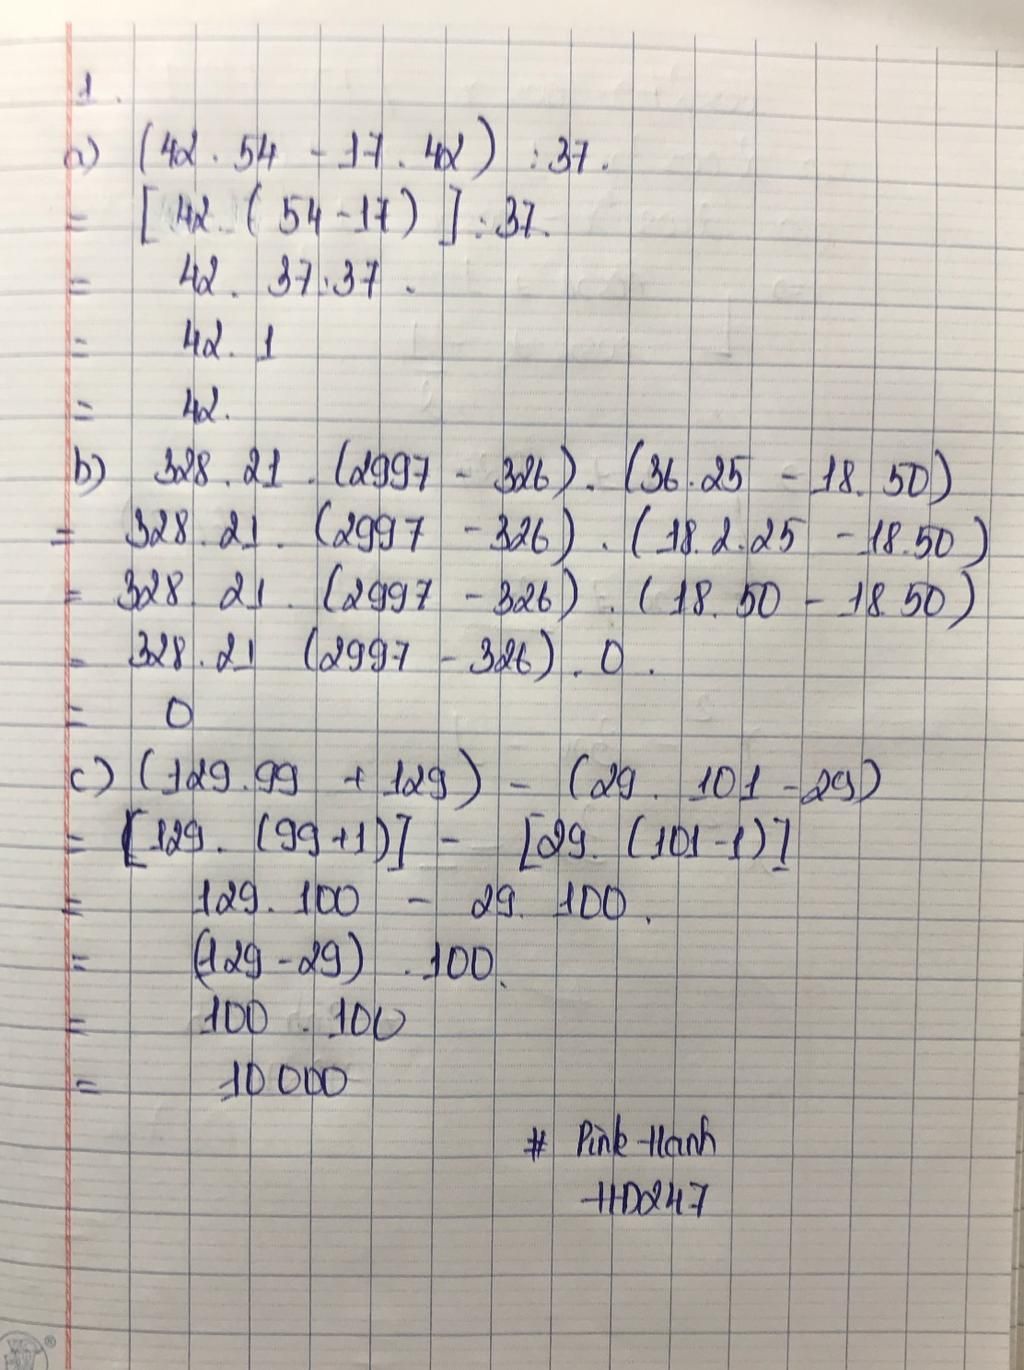 1.
a) (42.54 - 17.42) : 37.
= [42.(54-17)] : 37.
= 42. 37:37.
= 42. 1
= 42.
b) 328.21.(2997 - 326).(36.25 - 18.50)
= 328.21.(2997 - 326).(18.2.25 - 18.50)
= 328 21.(2997 - 326).(18.50 - 18.50)
= 328.21 (2997 - 326).0.
= 0
c) (129.99 + 129) - (29. 101 - 29)
= [129.(99+1)] - [29.(101-1)]
= 129.100 - 29.100.
= (129-29).100.
= 100.100
= 10000
# Pink Hanh
HD247